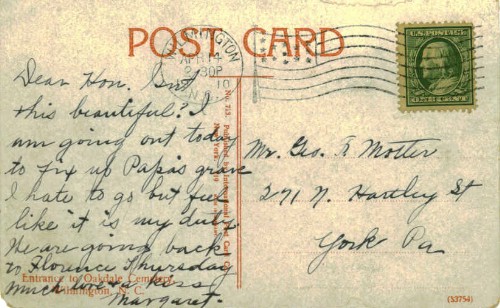 POST CARD
APR 14
2:30P
10
N.C.
U.S. POSTAGE
ONE CENT
Dear Hon. Isnt
this beautiful? I
am going out today
to fix up Papa's grave
I hate to go but feel
like it is my duty
We are going back
to Florence Thursday
much love & kiss
Margaret.
Entrance to Oakdale Cemetery,
Wilmington, N. C.
Mr. Geo. T. Motter
271 N. Hartley St
York Pa
(S3754)